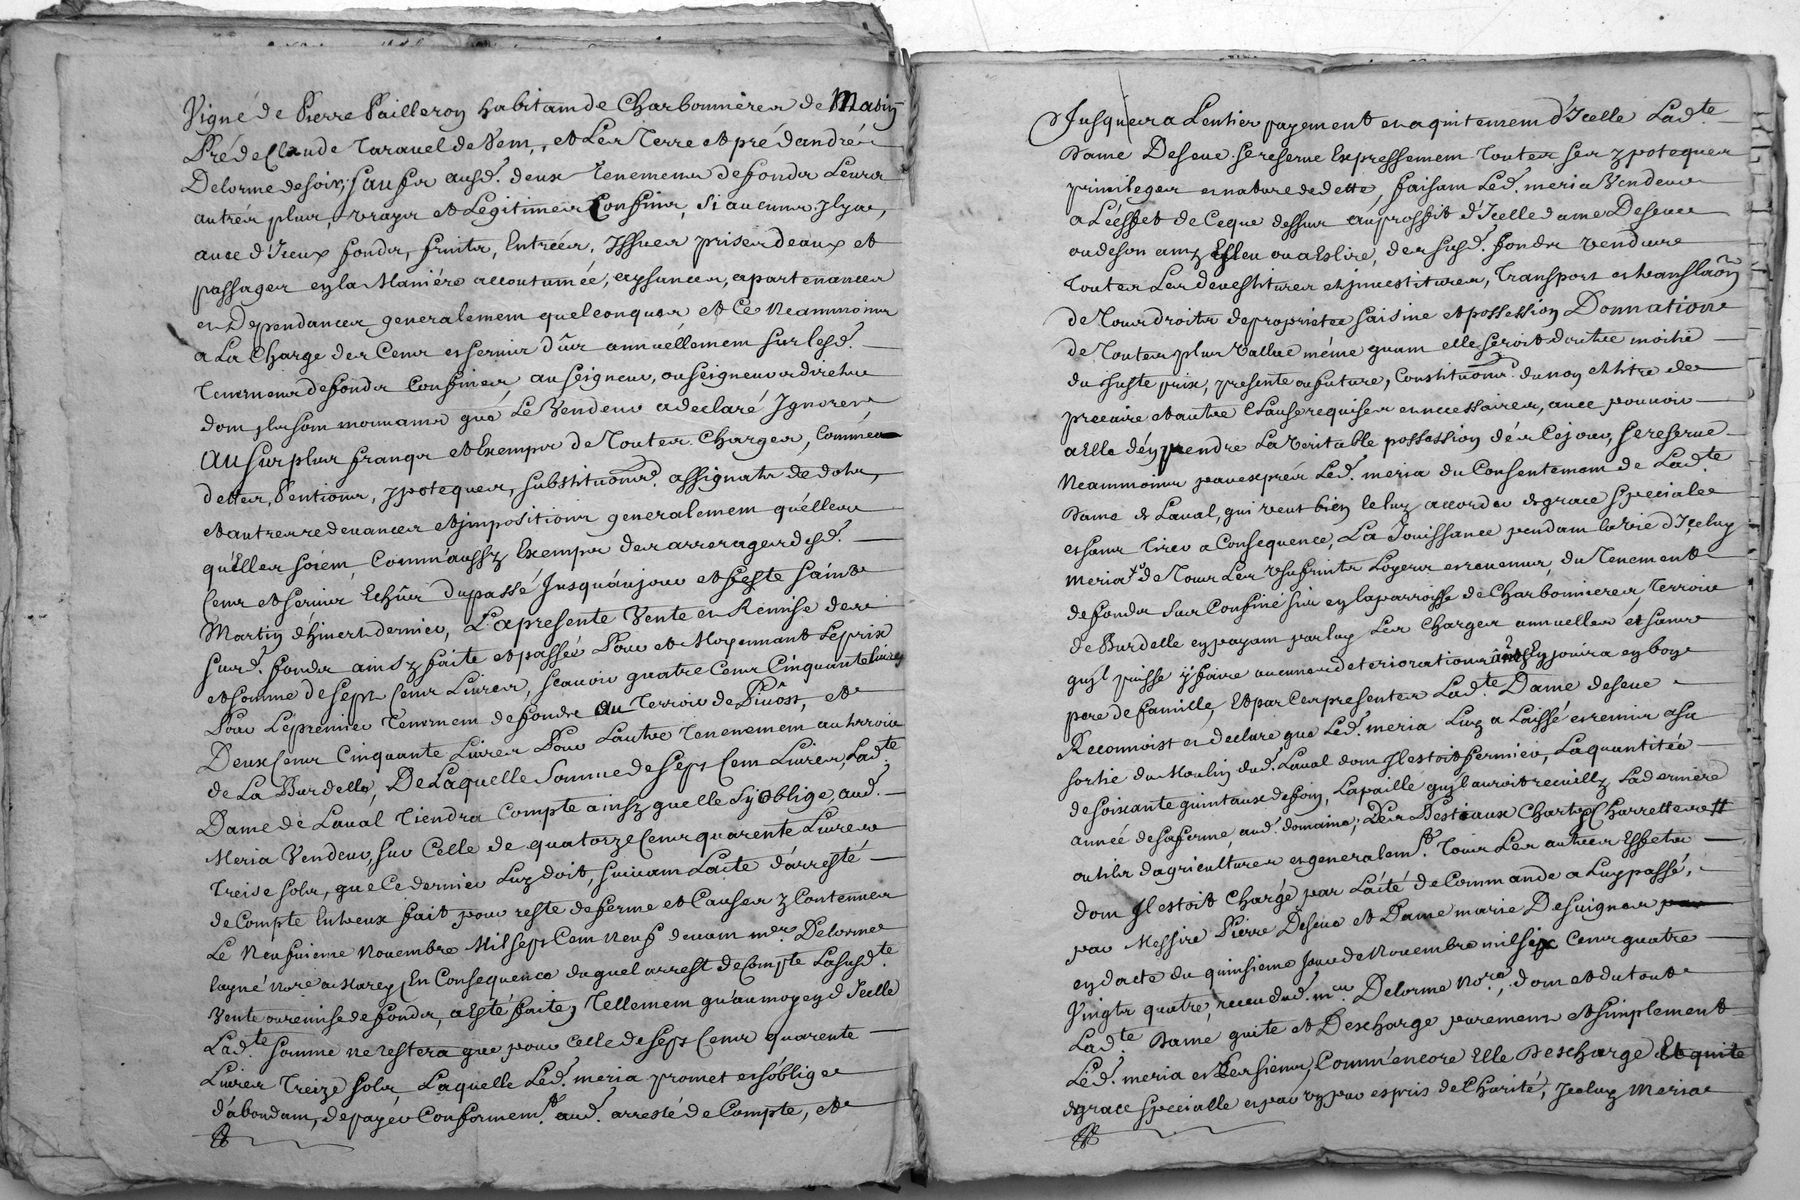 Vigne de Pierre Pailleron habitam de Charbonnieres de Masin
Pré de Claude Taravel de Vem, et Les Terre et pré dandré
Delorme de soir, sauf es ausd. deux tenemens de fonds Leurs
autres plus vrays et Legitimes Confins, si aucuns Jl y a,
avec d'Iceux fonds, fruits, Entrées, Issues prises deaux et
passages en la Maniére accoutumée, aysances, apartenances
et Dependances generalemem quelconques et Ce Neammoins
a La Charge des Cens et servis dûs annuéllemem sur lesd.
Tenemens de fonds Confinés, au seigneur, ou seigneurs directs
dom ils som mouvants que Le Vendeur a declaré Ignorer,
Au surplus francs et Exemps de Toutes Charges, Comme
dettes, Pentions, ypoteques, substituons. assignats de dots,
et autres redevances et impositions generalemem qu'elles
qu'elles soiem, Comm'aussy Exemps des arrerages desd.
Cens et servis Echûs du passé Jusqu'aujour et feste saint
Martin d'hivert dernier, La presente Vente et Remise des
susd. fonds ainsy faite et passés Pour et Moyennant Le prix
et somme de sept Cens Livres, scavoir quatre Cens Cinquante Livres
Pour Le premier Tenemem de fonds au Terroir de Pivost, et
Deux Cens Cinquante Livres Pour Lautre Tenemem au terroir
de La Burdelle, De Laquelle Somme de Sept Cem Livres, Lad.te
Dame de Laval Tiendra Compte ainsy quelle s'y oblige, aud.
Meria Vendeur, sur Celle de quatorze Cens quarente Livres
Treise sols, que Ce dernier Luy doit, suivam Lacte d'arresté
de Compte Entr'eux fait pour reste de ferme et Causes y Contenues
Le Neufuieme Novembre Mil sept Cem Neuf devam me. Delorme
layné Nore a Marcy, En Consequence duquel arrest de Compte La susd.te
Vente ou remise de fonds, a Esté faite, Tellemem qu'au moyen d'Icelle
Lad.te somme ne restera que pour Celle de sept Cens quarente
Livres Treize sols, Laquelle Led. meria promet et s'oblige
d'abondam, de payer Conformem.t aud. arresté de Compte, et
Jusques a Lentier payement et aquitemem d'Icelle Lad.te
Dame Deseve se reserve Expressemem toutes ses ypoteques
privileges et nature de dette, faisam Led. meria Vendeur
a Leeffet de Ceque dessus au proffit d'Icelle dame Deseve
ou de son amy Esleu ou a Eslire, des susd. fonds vendus
Toutes Les devestitures et investitures, Transport et translaon
de Tous droits de proprietée saisine et possession Donnation
de Toutes plus vallue même quam elle seroit d'outre moitié
du Juste prix, presente ou future, Constitutions. du nom et titre de
precaire et autre Clauses requises et necessaires, avec pouvoir
a Elle d'en prendre La Veritable possession dés Ce jour, se reserve
Neammoins par exprés Led. meria du Consentemem de Lad.te
Dame de Laval, qui veut bien le luy accorder de grace speciale
et sans Tirer a Consequence, La Jouissance pendam la vie d'Iceluy
Meria de Tous Les usufruits Loyers et revenus, du Tenement
de fonds sus Confiné sis en la parroisse de Charbonnieres, Terroir
de Burdelle en payam par luy Les Charges annuelles et sans
qu'jl puisse y faire aucunes deteriorations ains En jouira en bon
pere de famille, Et par Ces presentes Lad.te Dame deseve
Reconnoist et declare que Led. meria Luy a Laissé et remis a sa
sortie du Moulin dud. Laval dom Jl estoit fermier, La quantité
de soixante quintaux de foin, La paille quil auroit recuilly La derniére
année de sa ferme, aud. domaine, Les Bestiaux Charts Charrettes
outils d'agriculture, et generalem.t Tous Les autres Effets
dom Jl estoit Chargé par Lacté de Commande a Luy passé,
par Messire Pierre Deseve et Dame marie Desuignes
en dacte du quinsieme Jour de Novembre mil six Cens quatre
Vingts quatre, receu dud. me. Delorme No.re, dom et du tout
Lad.te Dame quite et Descharge purement et simplement
Led. meria et Les siens, Comm'encore Elle Descharge Et quite
de grace specialle et par un pur esprit de Charité, Iceluy Meria